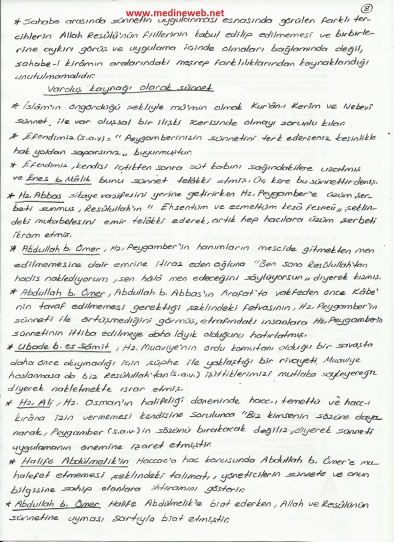 www.medineweb.net
8
* Sahabe arasında sünnetin uygulanması esnasında görülen farklı ter-
cihlerin Allah Resûlü'nün fiillerinin kabul edilip edilmemesi ve birbirle-
rine aykırı görüş ve uygulama içinde olmaları bağlamında değil,
sahabe-i kirâmın aralarındaki meşrep farklılıklarından kaynaklandığı
unutulmamalıdır.
Varoluş kaynağı olarak sünnet
* İslâm'ın öngördüğü şekliyle mü'min olmak Kur'ân-ı Kerim ve Nebevî
sünnet ile var oluşsal bir ilişki içerisinde olmayı zorunlu kılar.
* Efendimiz (s.a.v) = "Peygamberinizin sünnetini terk ederseniz kesinlikle
hak yoldan saparsınız" buyurmuştur.
* Efendimiz kendisi içtikten sonra süt kabını sağındakilere uzatmış
ve Enes b. Mâlik bunu sünnet telâkki etmiş. Üç kere bu sünnettir demiş.
* Hz. Abbas sikaye vazifesini yerine getirirken Hz. Peygamber'e üzüm şer-
beti sunmuş, Resûlullah'ın "Ehsentüm ve ecmeltüm kezâ fesneû" şeklin-
deki mukabelesini emir telâkki ederek, artık hep hacılara üzüm şerbeti
ikram etmiş.
* Abdullah b. Ömer, Hz. Peygamber'in hanımların mescide gitmekten men
edilmemesine dair emrine itiraz eden oğluna "Ben sana Resûlullah'tan
hadis naklediyorum, sen hâlâ men edeceğini söylüyorsun" diyerek kızmış.
* Abdullah b. Ömer, Abdullah b. Abbas'ın Arafat'ta vakfeden önce Kâbe'
nin tavaf edilmemesi gerektiği şeklindeki fetvasının, Hz. Peygamber'in
sünneti ile örtüşmediğini görmüş, etrafındaki insanlara Hz. Peygamber'in
sünnetinin ittiba edilmeye daha lâyık olduğunu hatırlatmış.
* Ubade b. es-Sâmit, Hz. Muaviye'nin ordu komutanı olduğu bir savaşta
daha önce duymadığı için şüphe ile yaklaştığı bir rivayeti, Muaviye
hoşlanmasa da biz Resûlullah'tan (s.a.v) işittiklerimizi mutlaka söyleyeceğiz
diyerek nakletmekte ısrar etmiş.
* Hz. Ali, Hz. Osman'ın halifeliği döneminde hacc-ı temettu ve hacc-ı
kırâna izin vermemesi kendisine sorulunca "Biz kimsenin sözüne daya
narak, Peygamber (s.a.v)'in sözünü bırakacak değiliz" diyerek sünneti
uygulamanın önemine işaret etmiştir.
* Halife Abdülmelik'in Haccac'a hac konusunda Abdullah b. Ömer'e mu-
halefet etmemesi şeklindeki talimatı, yöneticilerin sünnete ve onun
bilgisine sahip olanlara ihtiramını gösterir.
* Abdullah b. Ömer Halife Abdülmelik'e biat ederken, Allah ve Resûlünün
sünnetine uyması şartıyla biat etmiştir.